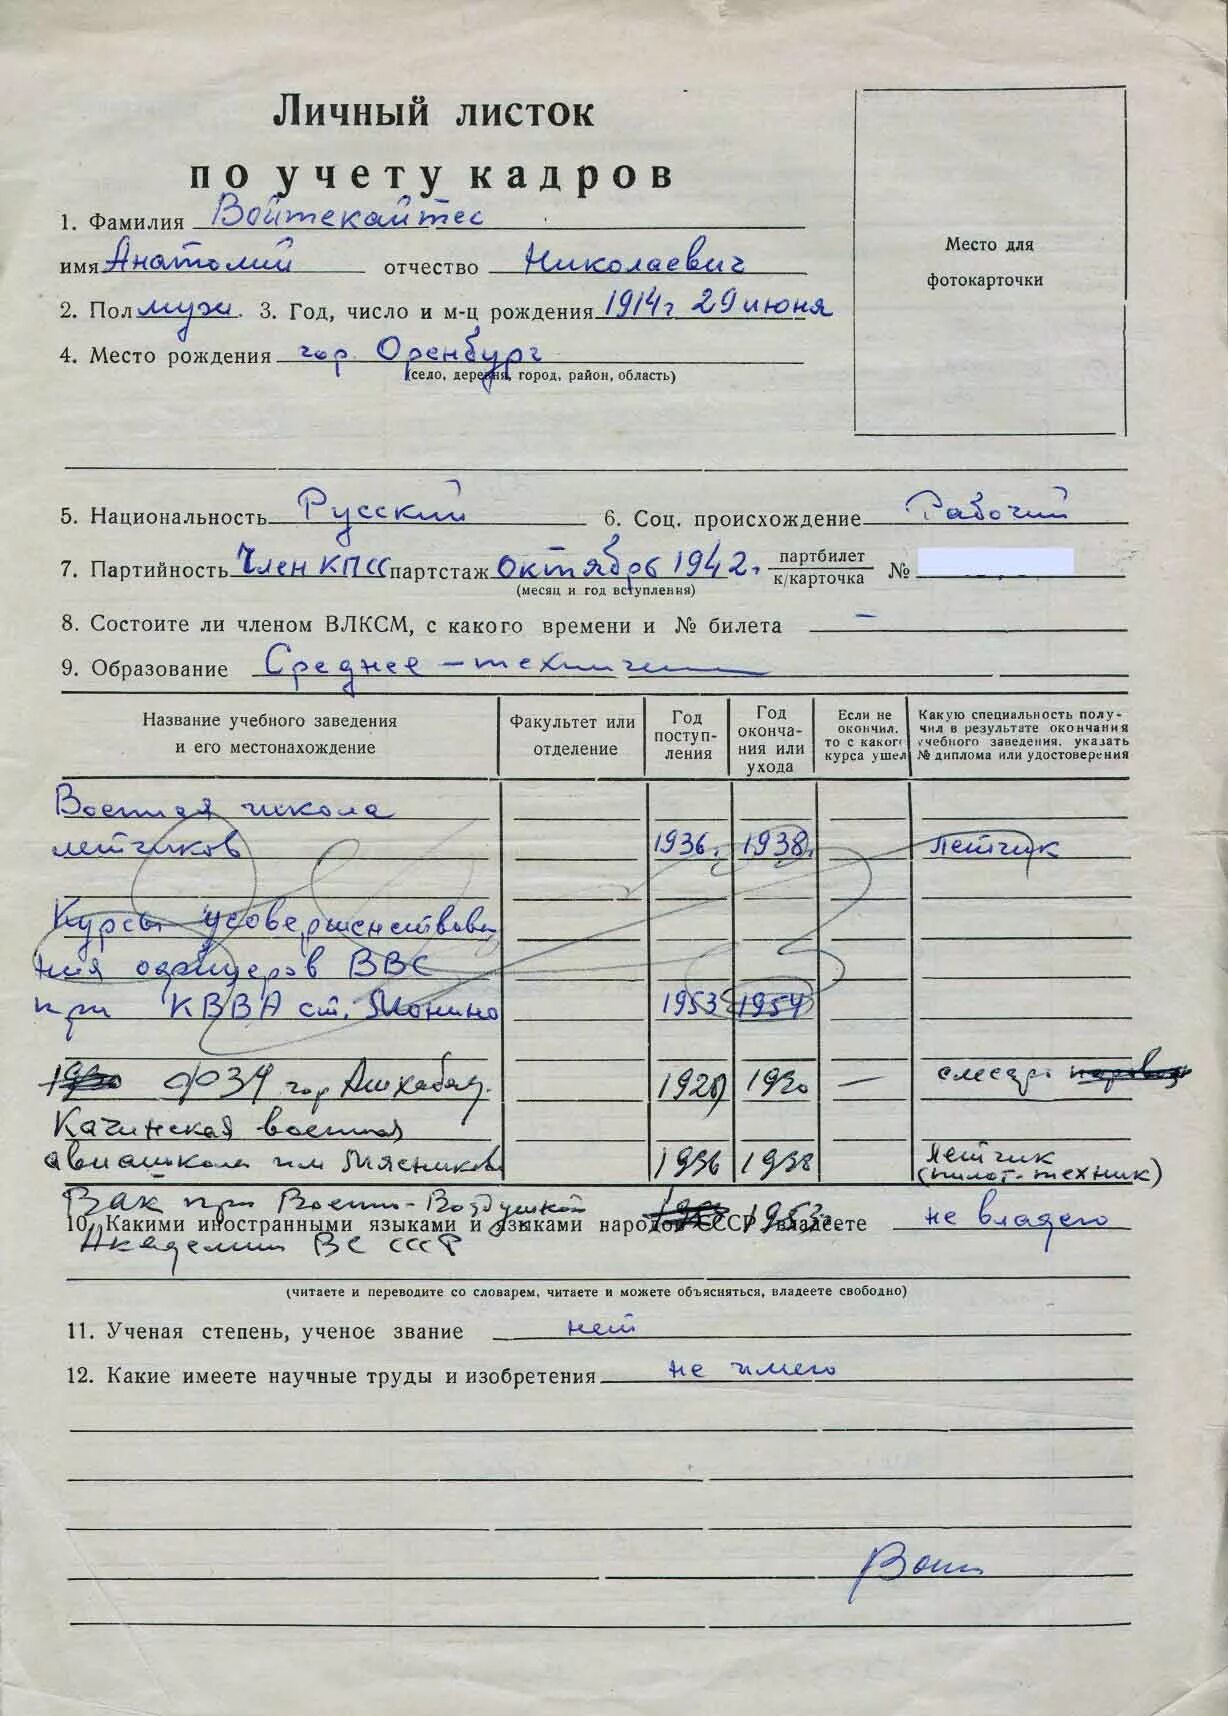 Личный листок
по учету кадров
1. Фамилия Войтекайтес
имя Анатолий отчество Николаевич
2. Пол муж. 3. Год, число и м-ц рождения 1914 г 29 июня
4. Место рождения гор. Оренбург
(село, деревня, город, район, область)
Место для
фотокарточки
5. Национальность Русский 6. Соц. происхождение Рабочий
7. Партийность Член КПСС партстаж октябрь 1942 г. партбилет
к/карточка №
(месяц и год вступления)
8. Состоите ли членом ВЛКСМ, с какого времени и № билета –
9. Образование Среднее - техническ
Название учебного заведения
и его местонахождение
Факультет или
отделение
Год
поступ-
ления
Год
оконча-
ния или
ухода
Если не
окончил,
то с какого
курса ушел
Какую специальность полу-
чил в результате окончания
учебного заведения, указать
№ диплома или удостоверения
Военная школа
летчиков 1936. 1938. Летчик
Курсы усовершенствова
ния офицеров ВВС
при КВВА ст. Монино 1953 1954
1930 ФЗУ гор Ашхабад. 1928 1930 — слесарь паровоз
Качинская военная
авиашкола им Мясникова 1936 1938 Летчик
(пилот-техник)
ВАК при Военно-Воздушной 1953
10. Какими иностранными языками и языками народов СССР владеете не владею
Академии ВС СССР
(читаете и переводите со словарем, читаете и можете объясняться, владеете свободно)
11. Ученая степень, ученое звание нет
12. Какие имеете научные труды и изобретения не имею